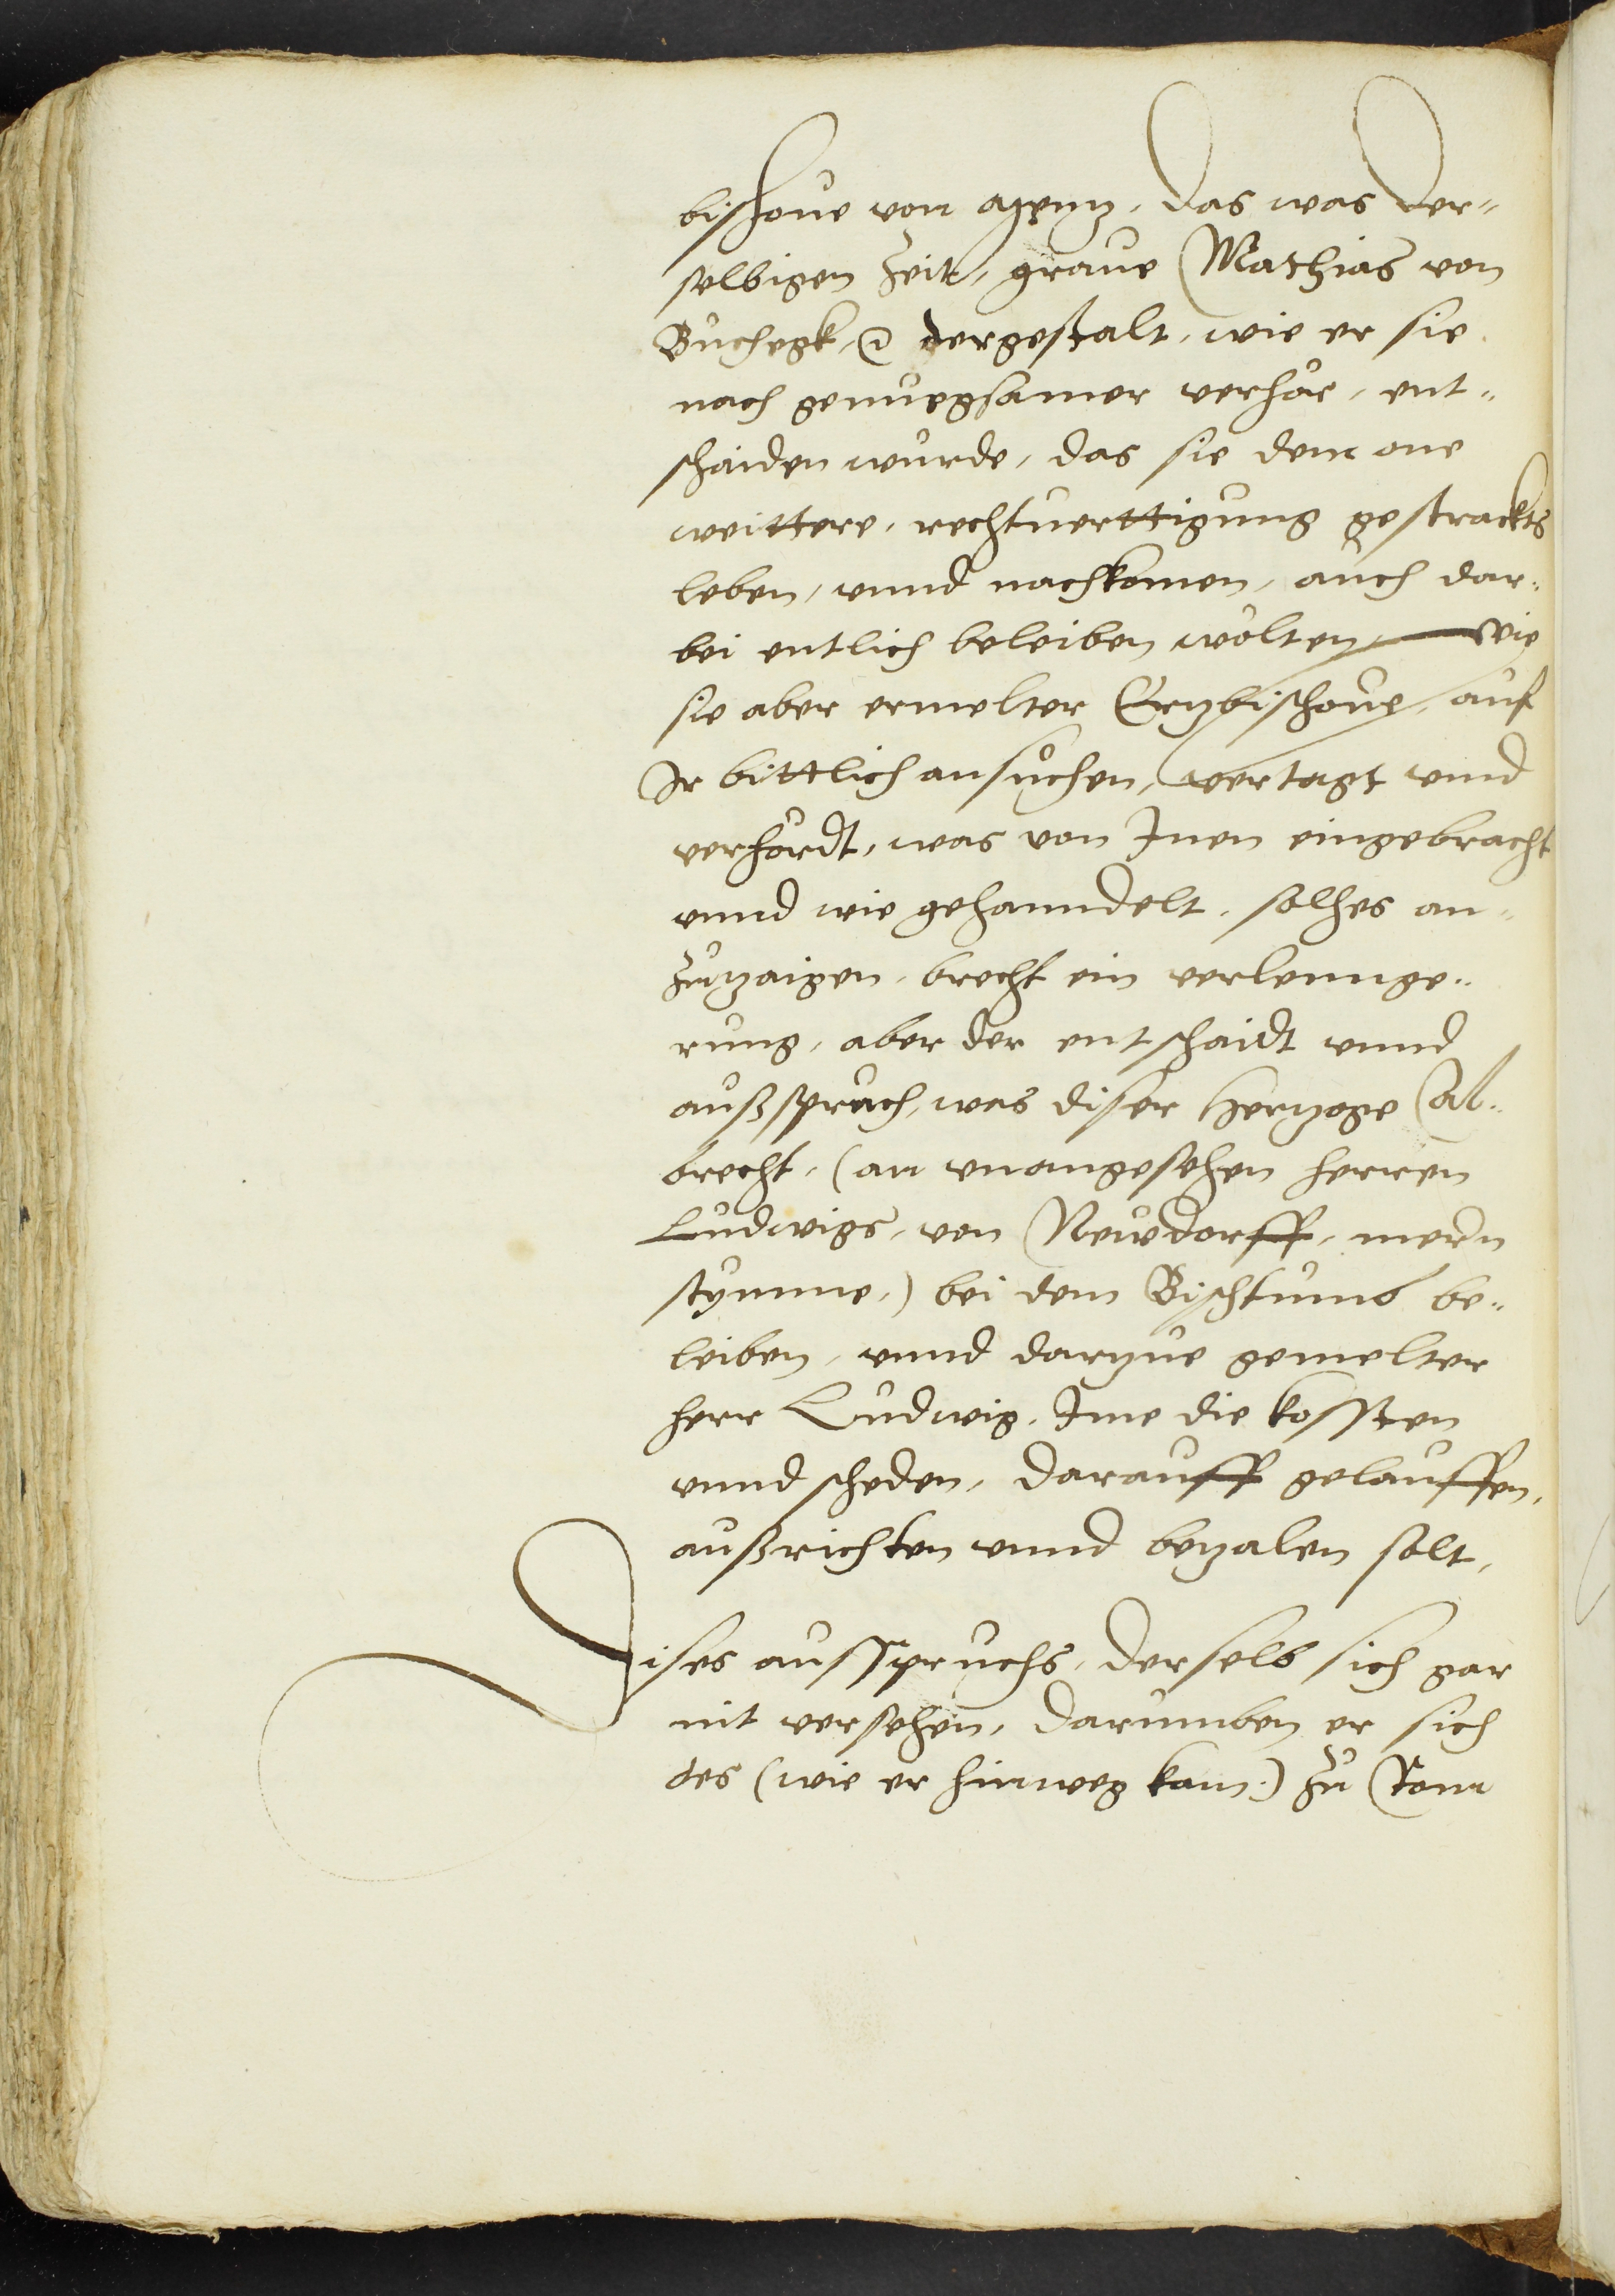 bischoue von Meintz, das was der„
selbigen Zeit, graue Mathias von
Buchegk, dergestalt, wie er sie
nach genuegsamer verhör, ent„
schaiden wurde, das sie dem one
weittere, rechtuerttigung gestrackts
leben, vnnd nachkomen, auch dar„
bei entlich beleiben wolten, Wie
sie aber ermelter Ertzbischoue, auf
Ir bittlich ansůchen, vertagt vnnd
verhördt, was von Inen eingebracht
vnnd wie gehanndelt, solhes an„
zuzaigen, brecht ein verlennge„
rung, aber der entschaidt vnnd
außspruch, was diser Hertzoge Al„
brecht, (an vnangesehen herren
Ludwigs, von Newdorff, mern
stymme,) bei dem Bischtumb be„
leiben, vnnd dartzue gemelter
herr Ludwig, Ime die kossten
vnnd scheden, darauff gelauffen,
außrichten vnnd betzalen solt,
Dises ausspruchs, derselb sich gar
nit versehen, darumben er sich
des (wie er hinweg kam:) zu Rom